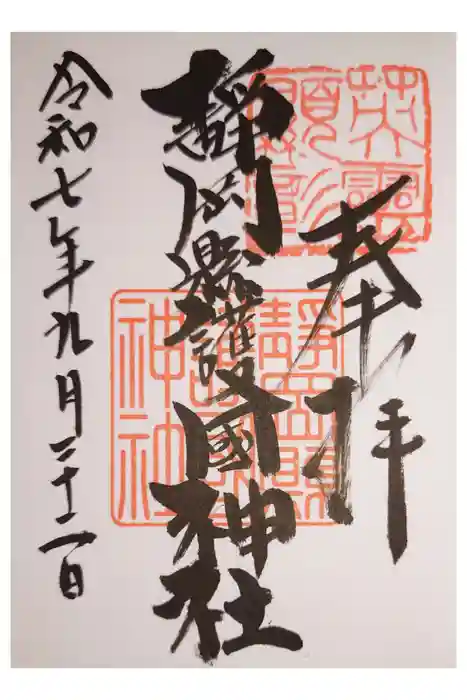 奉拝
英靈顕彰
靜岡縣護國神社
靜岡縣護國神社
令和七年九月二十二日